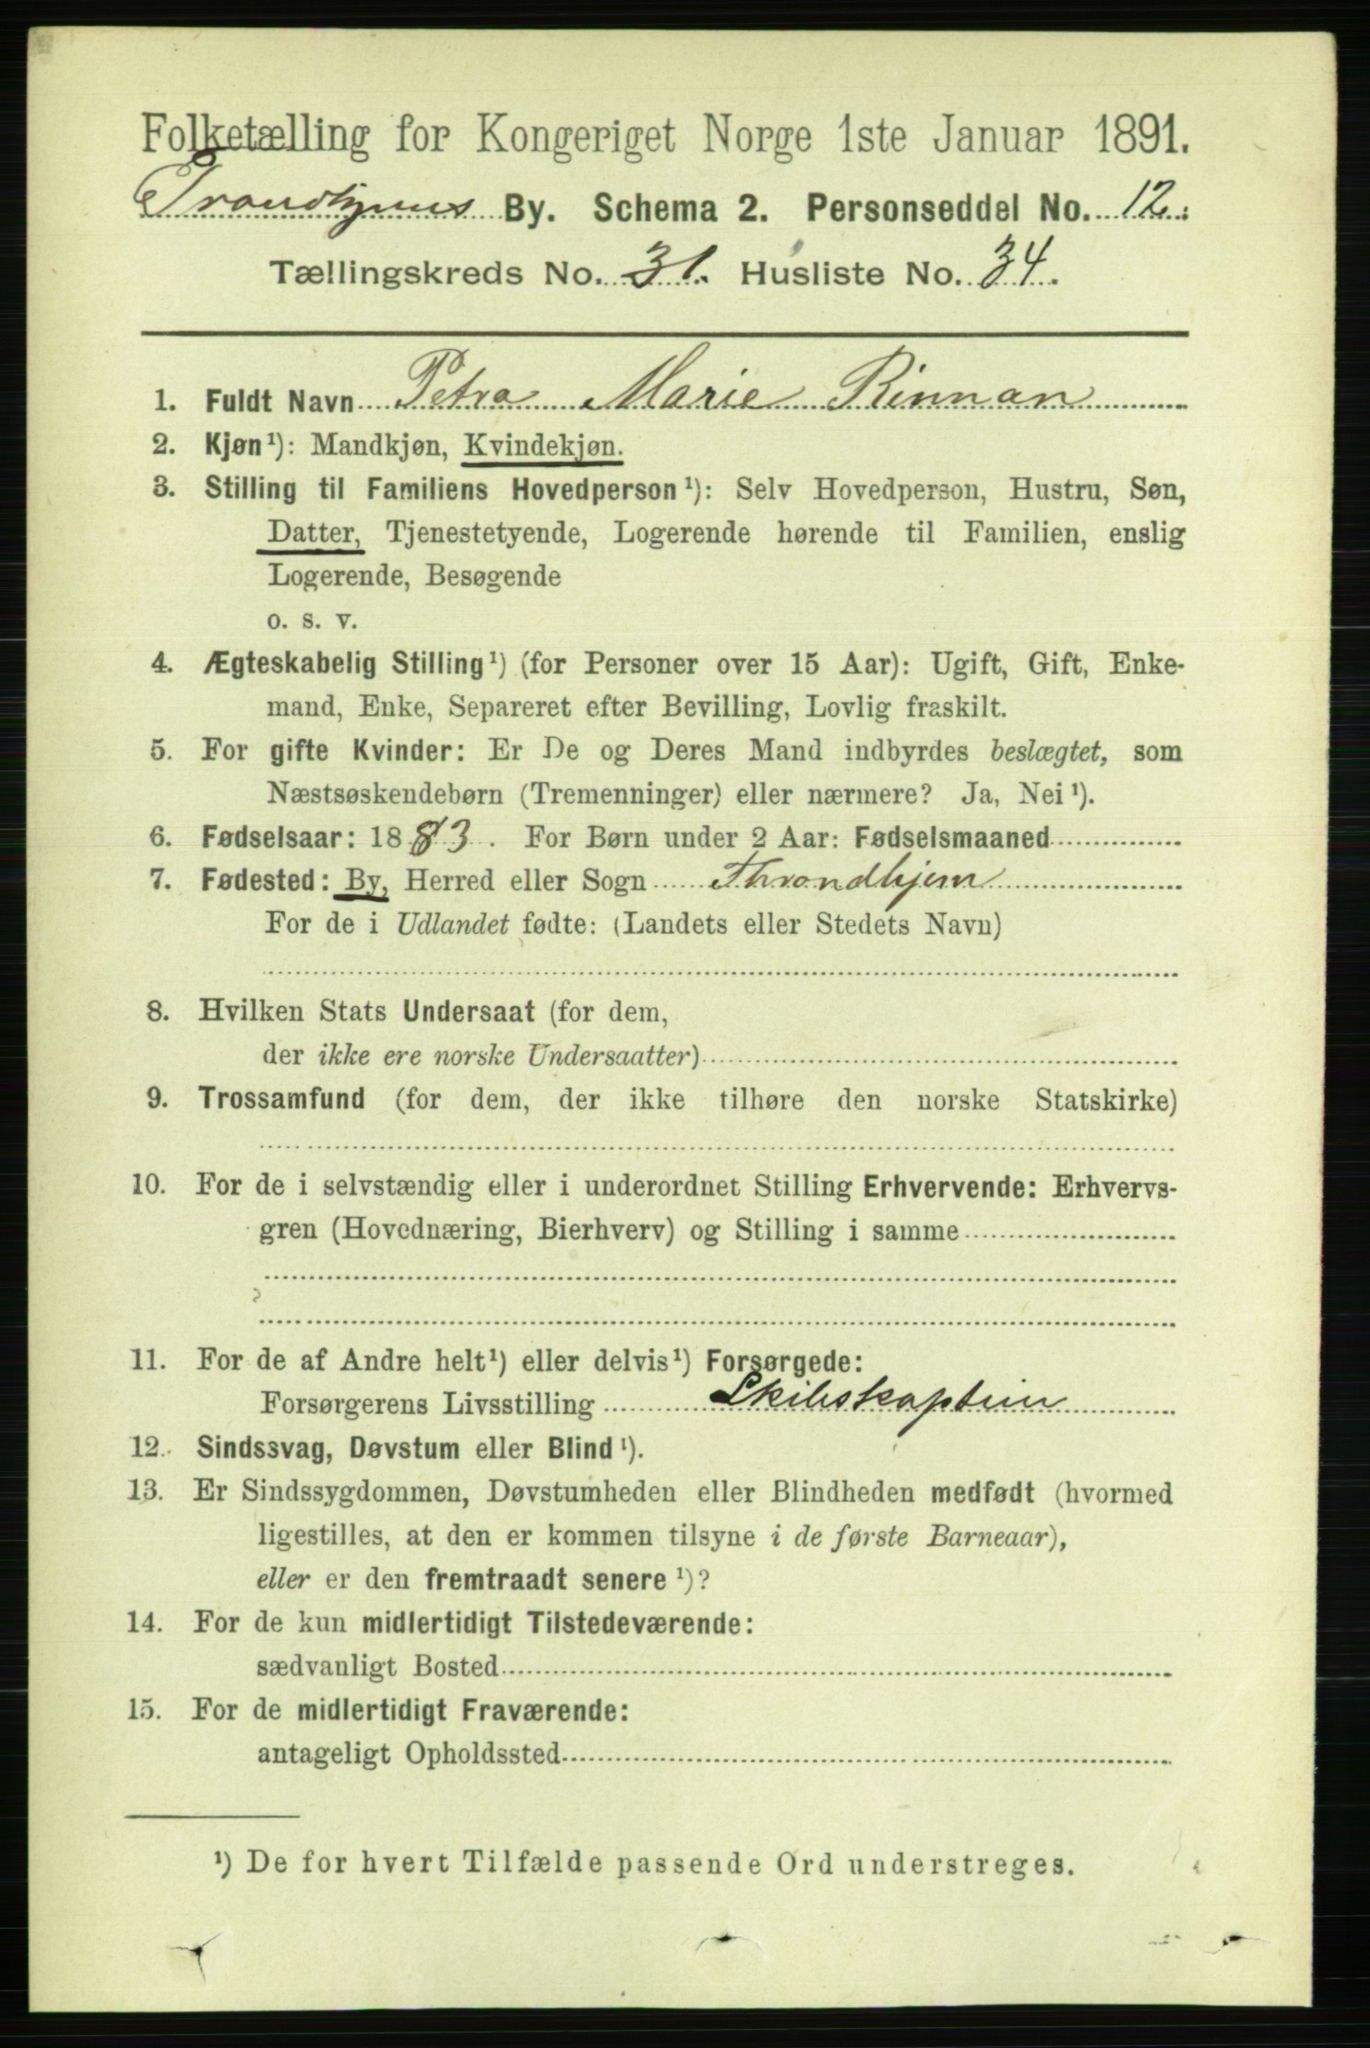 Folketælling for Kongeriget Norge 1ste Januar 1891.
Trondhjems By. Schema 2. Personseddel No. 12.
Tællingskreds No. 31. Husliste No. 34.
1. Fuldt Navn Petra Marie Rinnan
2. Kjøn¹): Mandkjøn, Kvindekjøn.
3. Stilling til Familiens Hovedperson¹): Selv Hovedperson, Hustru, Søn,
Datter, Tjenestetyende, Logerende hørende til Familien, enslig
Logerende, Besøgende
o. s. v.
4. Ægteskabelig Stilling¹) (for Personer over 15 Aar): Ugift, Gift, Enke-
mand, Enke, Separeret efter Bevilling, Lovlig fraskilt.
5. For gifte Kvinder: Er De og Deres Mand indbyrdes beslægtet, som
Næstsøskendebørn (Tremenninger) eller nærmere? Ja, Nei¹).
6. Fødselsaar: 1883. For Børn under 2 Aar: Fødselsmaaned
7. Fødested: By, Herred eller Sogn Throndhjem
For de i Udlandet fødte: (Landets eller Stedets Navn)
8. Hvilken Stats Undersaat (for dem,
der ikke ere norske Undersaatter)
9. Trossamfund (for dem, der ikke tilhøre den norske Statskirke)
10. For de i selvstændig eller i underordnet Stilling Erhvervende: Erhvervs-
gren (Hovednæring, Bierhverv) og Stilling i samme
11. For de af Andre helt¹) eller delvis¹) Forsørgede:
Forsørgerens Livsstilling Skibskaptein
12. Sindssvag, Døvstum eller Blind¹).
13. Er Sindssygdommen, Døvstumheden eller Blindheden medfødt (hvormed
ligestilles, at den er kommen tilsyne i de første Barneaar),
eller er den fremtraadt senere¹)?
14. For de kun midlertidigt Tilstedeværende:
sædvanligt Bosted
15. For de midlertidigt Fraværende:
antageligt Opholdssted
¹) De for hvert Tilfælde passende Ord understreges.